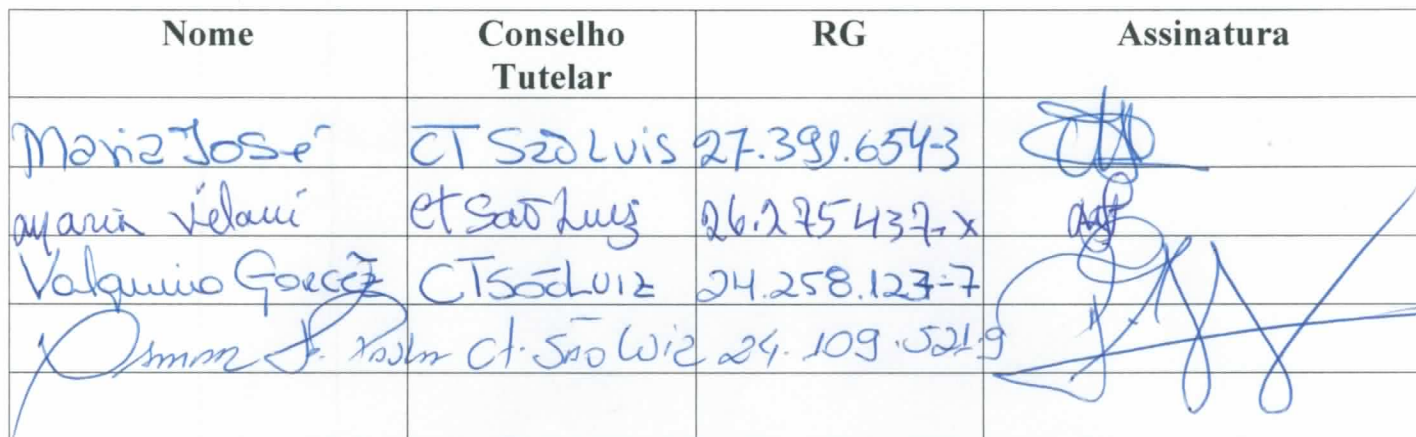 Nome Conselho Tutelar RG Assinatura
Maria José CT São Luis 27.391.654-3
Maria Ct São Luiz 26.275437-X
Garcez CTSãoLuiz 24.258.127-7
Osmar Ct. São Luiz 24.109.521-9